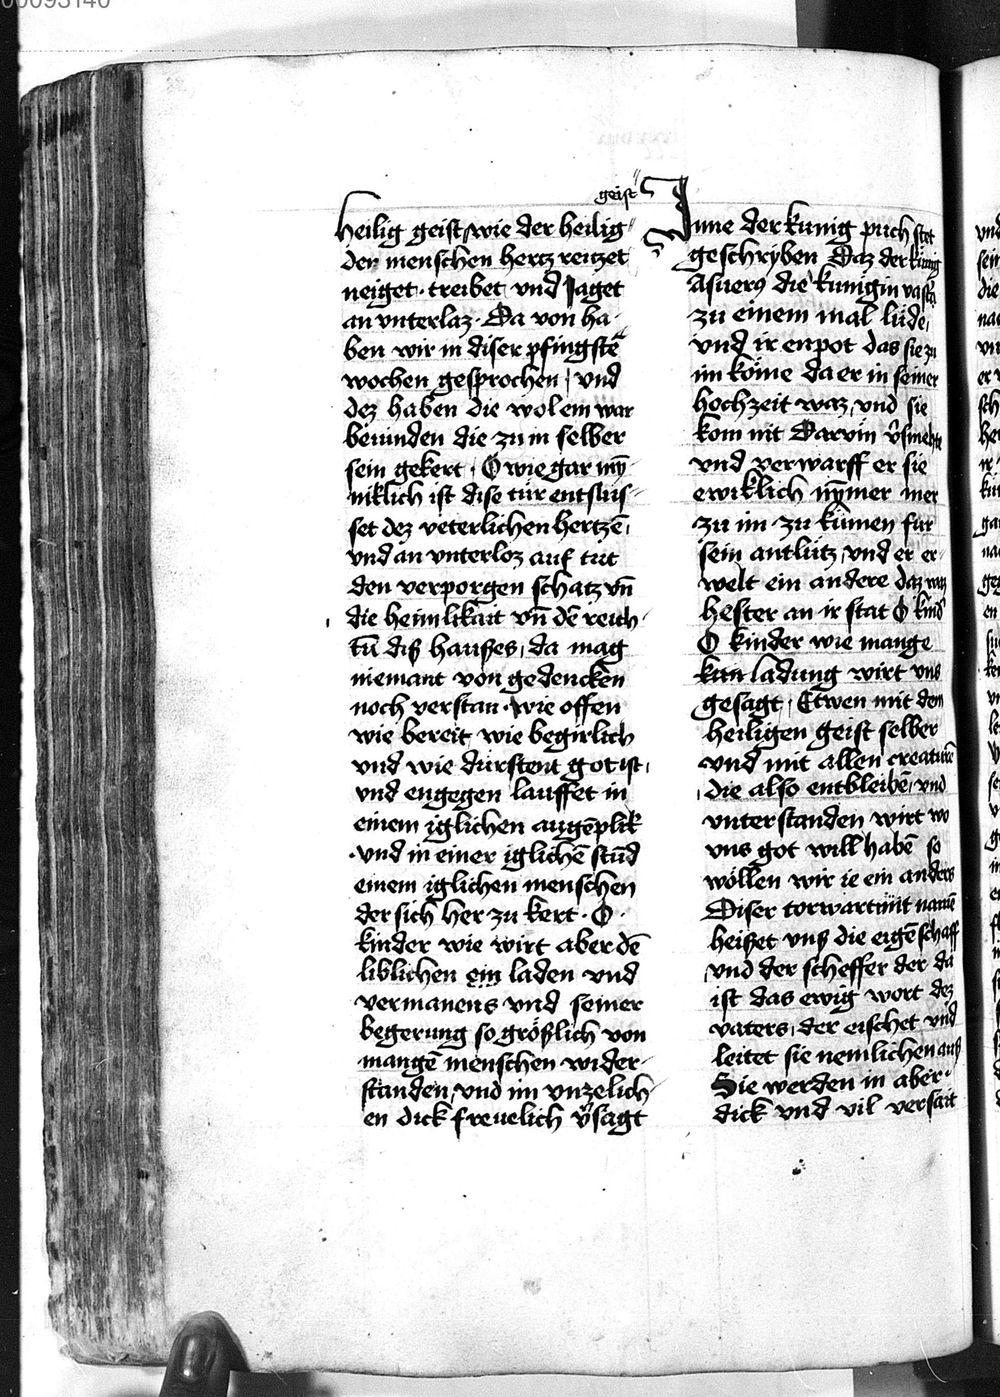 00093140
geist
heilig geist wie der heilig
der menschen hertz reitzet
neiget · treibet vnd Jaget
an vnterlaz · Da von ha-
ben wir in diser pfingstē
wochen gesprochen / vnd
dez haben die wol em war
beuinden die zu in selber
sein gekert · O wie gar mȳ-
niklich ist dise tür entslüs-
set dez veterlichen hertzē
vnd an vnterloz auf tut
den verporgen schatz vn̄
die heimlikait vn̄ dē reich-
tū diß haußes / da mag
niemant von gedencken
noch verstan · wie offen
wie bereit wie begirlich
vnd wie dürstent got ist /
vnd engegen lauffet in
einem iglichen augēplik
· vnd in einer iglichē stūd
einem iglichen menschen
der sich her zu kert · O ·
kinder wie wirt aber dē
liblichen ein laden vnd
vermanens vnd seiner
begerung so größlich von
mangē menschen wider-
standen / vnd im vnzelich-
en dick freuelich v̄sagt
Inne der kunig puch stet
geschryben Daz der kūnig
Asuerꝰ die kunigin vasti
zu einem mal lüde /
vnd ir enpot das sie zu
im köme da er in seiner
hochzeit waz / vnd sie
kom nit Darvm v̄smehte
vnd verwarff er sie
ewiklich nȳmer mer
zu im zu kümen für
sein antlütz / vnd er er-
welt ein andere daz waz
hester an ir stat O kind
O kinder wie mange
kun ladung wirt vns
gesagt / Etwen mit dem
heiligen geist selber
vnd mit allen creaturē
/ die also entbleibē / vnd
vnterstanden wirt wo
vns got will habē so
wöllen wir ie ein anders
Diser torwart mit namē
heißet vnß die eigē schaff
vnd der scheffer der da
ist das ewig wort dez
vaters / der eischet vnd
leitet sie nemlichen auß
Sie werden in aber ·
dick vnd vil versait